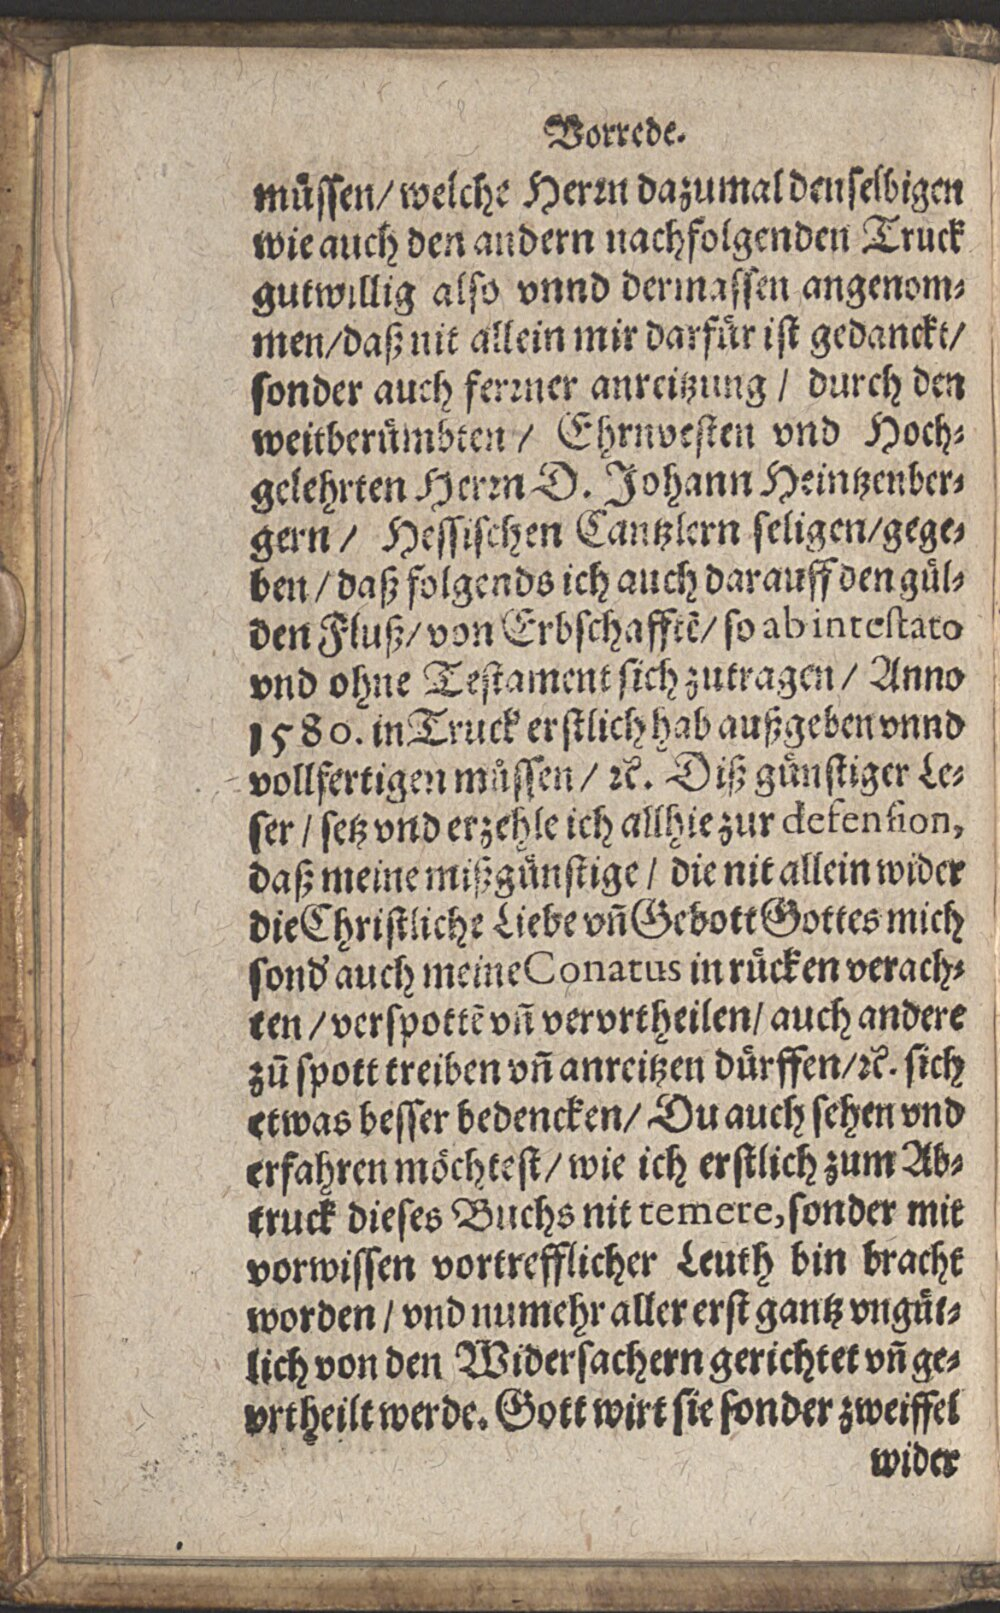 Vorrede.
müssen/ welche Herrn dazumal denselbigen
wie auch den andern nachfolgenden Truck
gutwillig also vnnd dermassen angenom⸗
men/daß nit allein mir darfür ist gedanckt/
sonder auch ferrner anreitzung / durch den
weitberümbten / Ehrnvesten vnd Hoch⸗
gelehrten Herrn D. Johann Heintzenber⸗
gern / Hessischen Cantzlern seligen/gege⸗
ben / daß folgends ich auch darauff den gül⸗
den Fluß/ von Erbschafftẽ/ so ab intestato
vnd ohne Testament sich zutragen / Anno
1580. in Truck erstlich hab außgeben vnnd
vollfertigen müssen / ꝛc̃. Diß günstiger Le⸗
ser / setz vnd erzehle ich allhie zur defension,
daß meine mißgünstige / die nit allein wider
die Christliche Liebe vñ Gebott Gottes mich
sond' auch meine Conatus in rücken verach⸗
ten / verspottẽ vñ vervrtheilen/ auch andere
zũ spott treiben vñ anreitzen dürffen/ꝛc̃. sich
etwas besser bedencken/ Du auch sehen vnd
erfahren möchtest/ wie ich erstlich zum Ab⸗
truck dieses Buchs nit temere, sonder mit
vorwissen vortrefflicher Leuth bin bracht
worden / vnd numehr aller erst gantz vngüt⸗
lich von den Widersachern gerichtet vñ ge⸗
vrtheilt werde. Gott wirt sie sonder zweiffel
wider